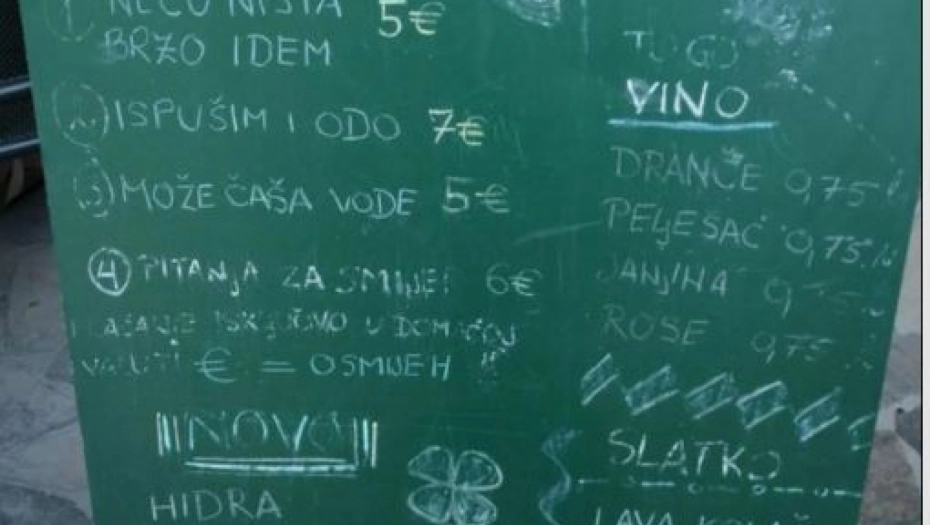 1. NEĆU NIŠTA 5€
BRZO IDEM
2.) ISPUŠIM I ODO 7€
3.) MOŽE ČAŠA VODE 5€
4 PITANJA ZA SMIJEŠ 6€
PLAĆANJE ISKLJUČIVO U DOMAĆOJ
VALUTI € = OSMIJEH !!
NOVO
HIDRA
TO GO
VINO
DRANČE 0,75 l
PELJEŠAC 0,75 l
JANJINA 0,75
ROSE 0,75
SLATKO
LAVA KOLAČ